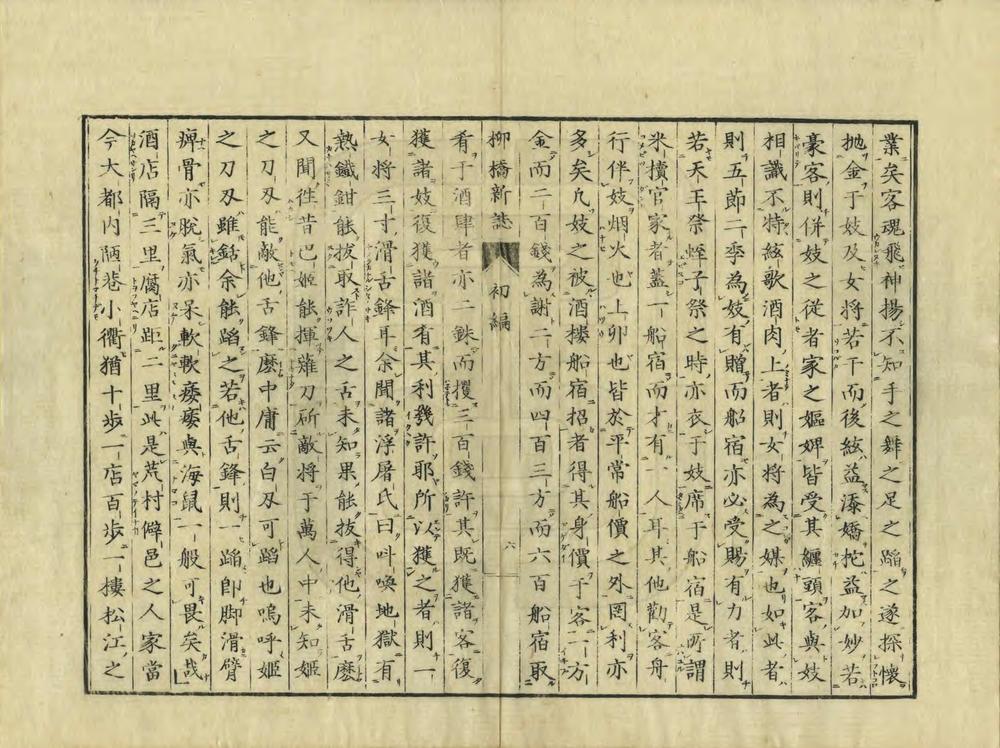 業矣客魂飛神揚不知手之舞之足之蹈之遂探懷
抛金于妓及女将若干而後絃益添嬌挓益加妙若
豪客則併妓之従者家之嫗婢皆受其纏頭客與妓
相識不特絃歌酒肉上者則女将為之媒也如此者
則五節二季為妓有贈而船宿亦必受賜有力者則
若天王祭蛭子祭之時亦衣于妓席于船宿是所謂
米櫝官家者蓋一船宿而才有一人耳其他勸客舟
行伴妓烟火也上卯也皆於平常船價之外罔利亦
多矣凡妓之被酒樓船宿招者得其身價于客一方
金而二百錢為謝二方而四百三方而六百船宿取
柳橋新誌 初編 六
肴于酒肆者亦二銖而攫三百錢許其既獲諸客復
獲諸妓復獲諸酒有其利幾許耶所以獲之者則一
女将三寸滑舌鋒耳余聞諸浮屠氏曰呌喚地獄有
熱鐵鉗能拔取詐人之舌未知果能拔得他滑舌麼
又聞徃昔巴姫能揮薙刀斫敵将于萬人中未知姫
之刀刃能敵他舌鋒麼中庸云白刃可蹈也嗚呼姫
之刀刃雖銛余能蹈之若他舌鋒則一蹈卽脚滑臂
痺骨亦脫氣亦呆軟軟痿痿與海鼠一般可畏矣哉
酒店隔三里腐店距二里此是荒村僻邑之人家當
今大都内陋巷小衢猶十歩一店百歩一樓松江之